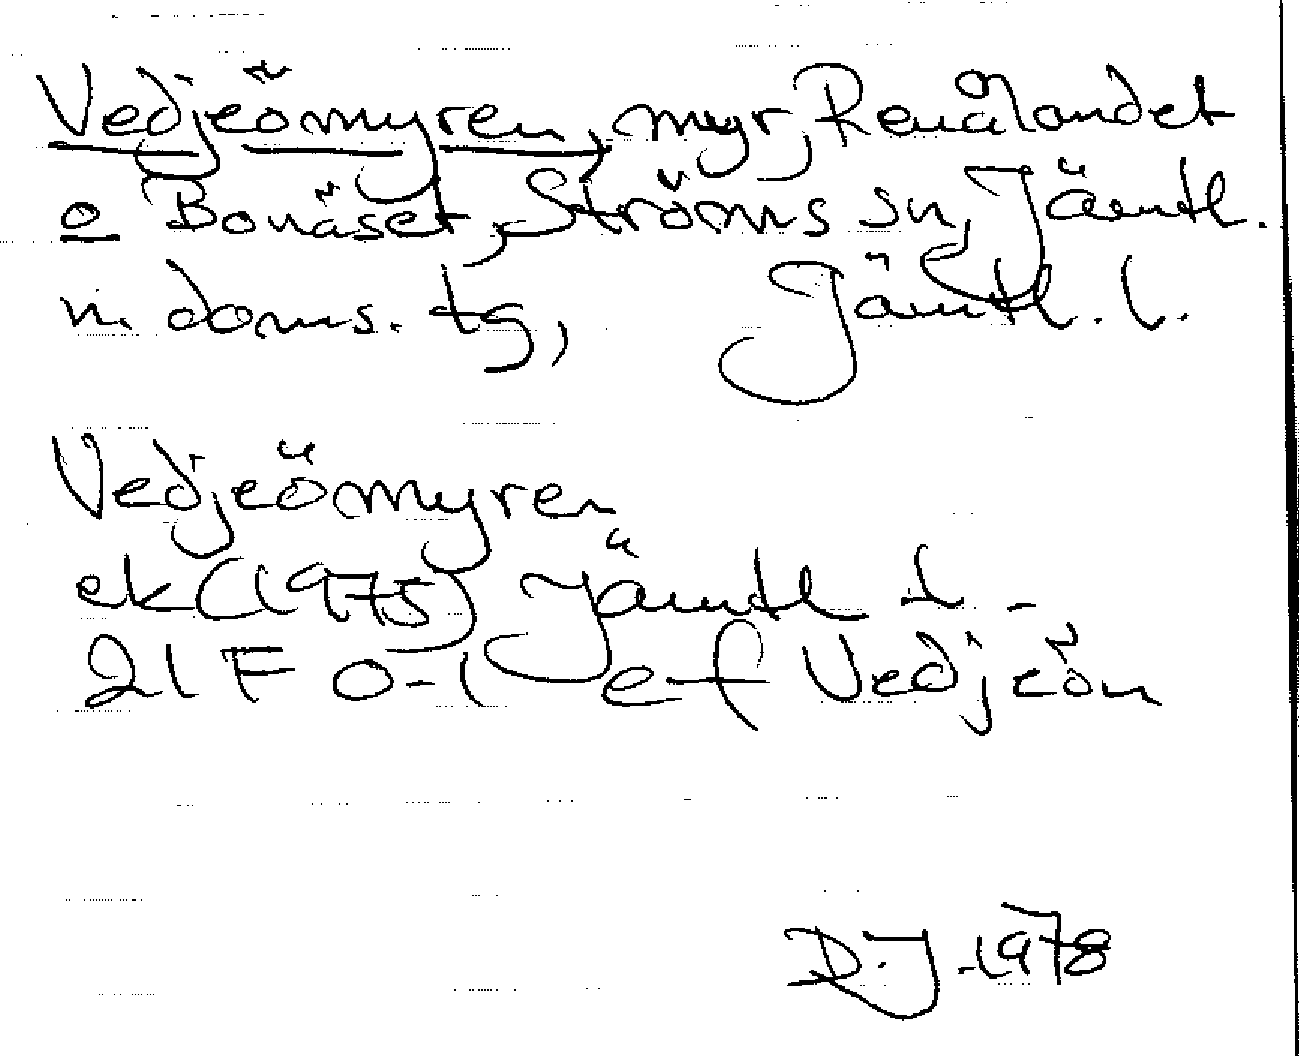 Vedjeömyren, myr, Renålandet
o Bonäset, Ströms sn, Jämtl.
n. doms. tg, Jämtl. l.
Vedjeömyren
ek (1975) Jämtl l -
21 F 0-1 ef Vedjeön
D.J. 1978